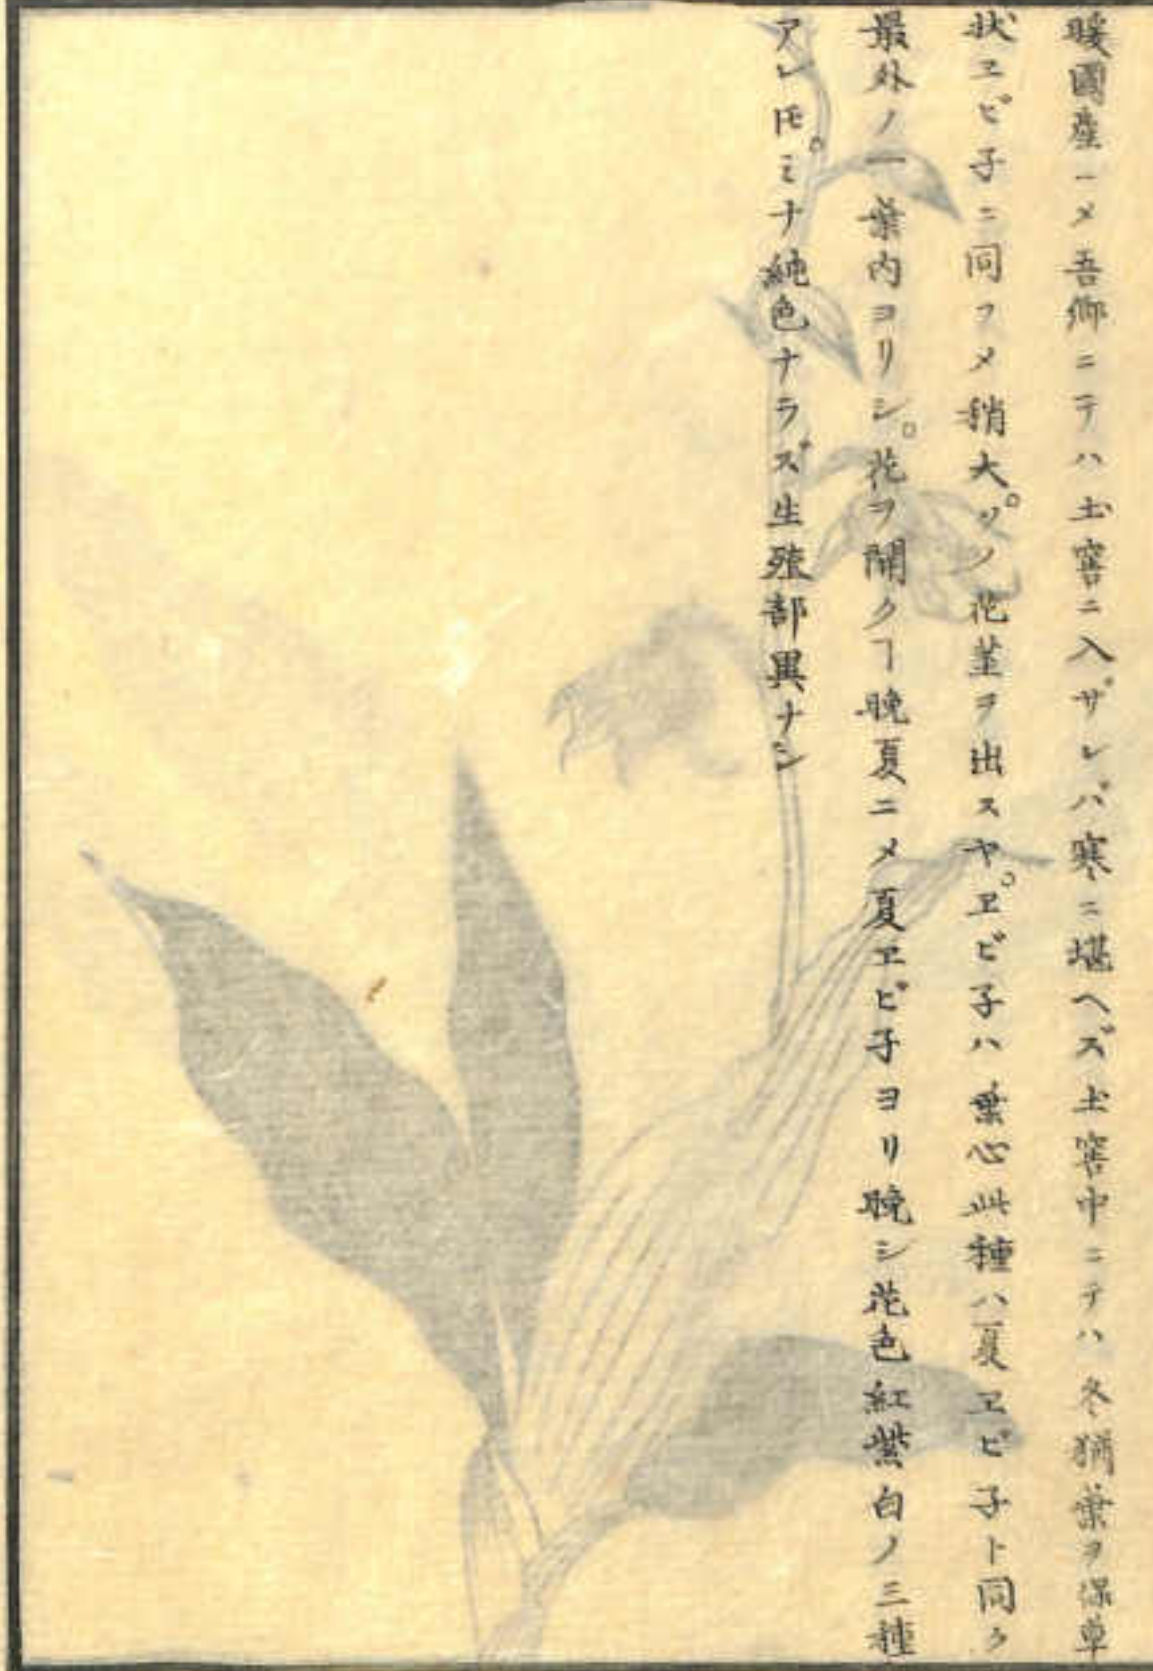 暖國産ーメ吾郷ニテハ土窖ニ入ザレバ寒ニ堪ヘズ土窖中ニテハ冬猶葉ヲ保草
状ヱビ子ニ同フメ稍大。ソノ花莖ヲ出スヤ。ヱビ子ハ葉心此種ハ夏ヱビ子ト同ク
最外ノ一葉内ヨリシ。花ヲ開クヿ晩夏ニメ夏ヱビ子ヨリ晩シ花色紅紫白ノ三種
アレ𪜈。ミナ純色ナラズ生殖部異ナシ